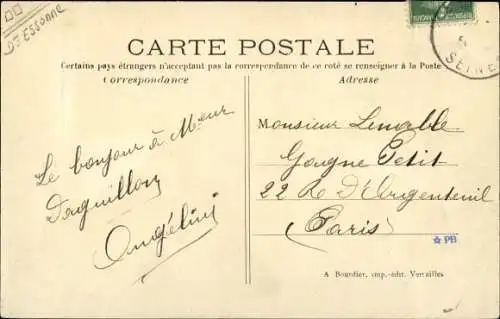 D5 ESSonne
CARTE POSTALE
Certains pays étrangers n'acceptant pas la correspondance de ce coté se renseigner à la Poste
Correspondance
Adresse
SEINE
Le bonjour à Meur
Daguillon
Angélini
Monsieur Lenoble
Gougne Petit
22 Re D'Argenteuil
(Paris)
PB
A Bourdier, imp.-édit. Versailles